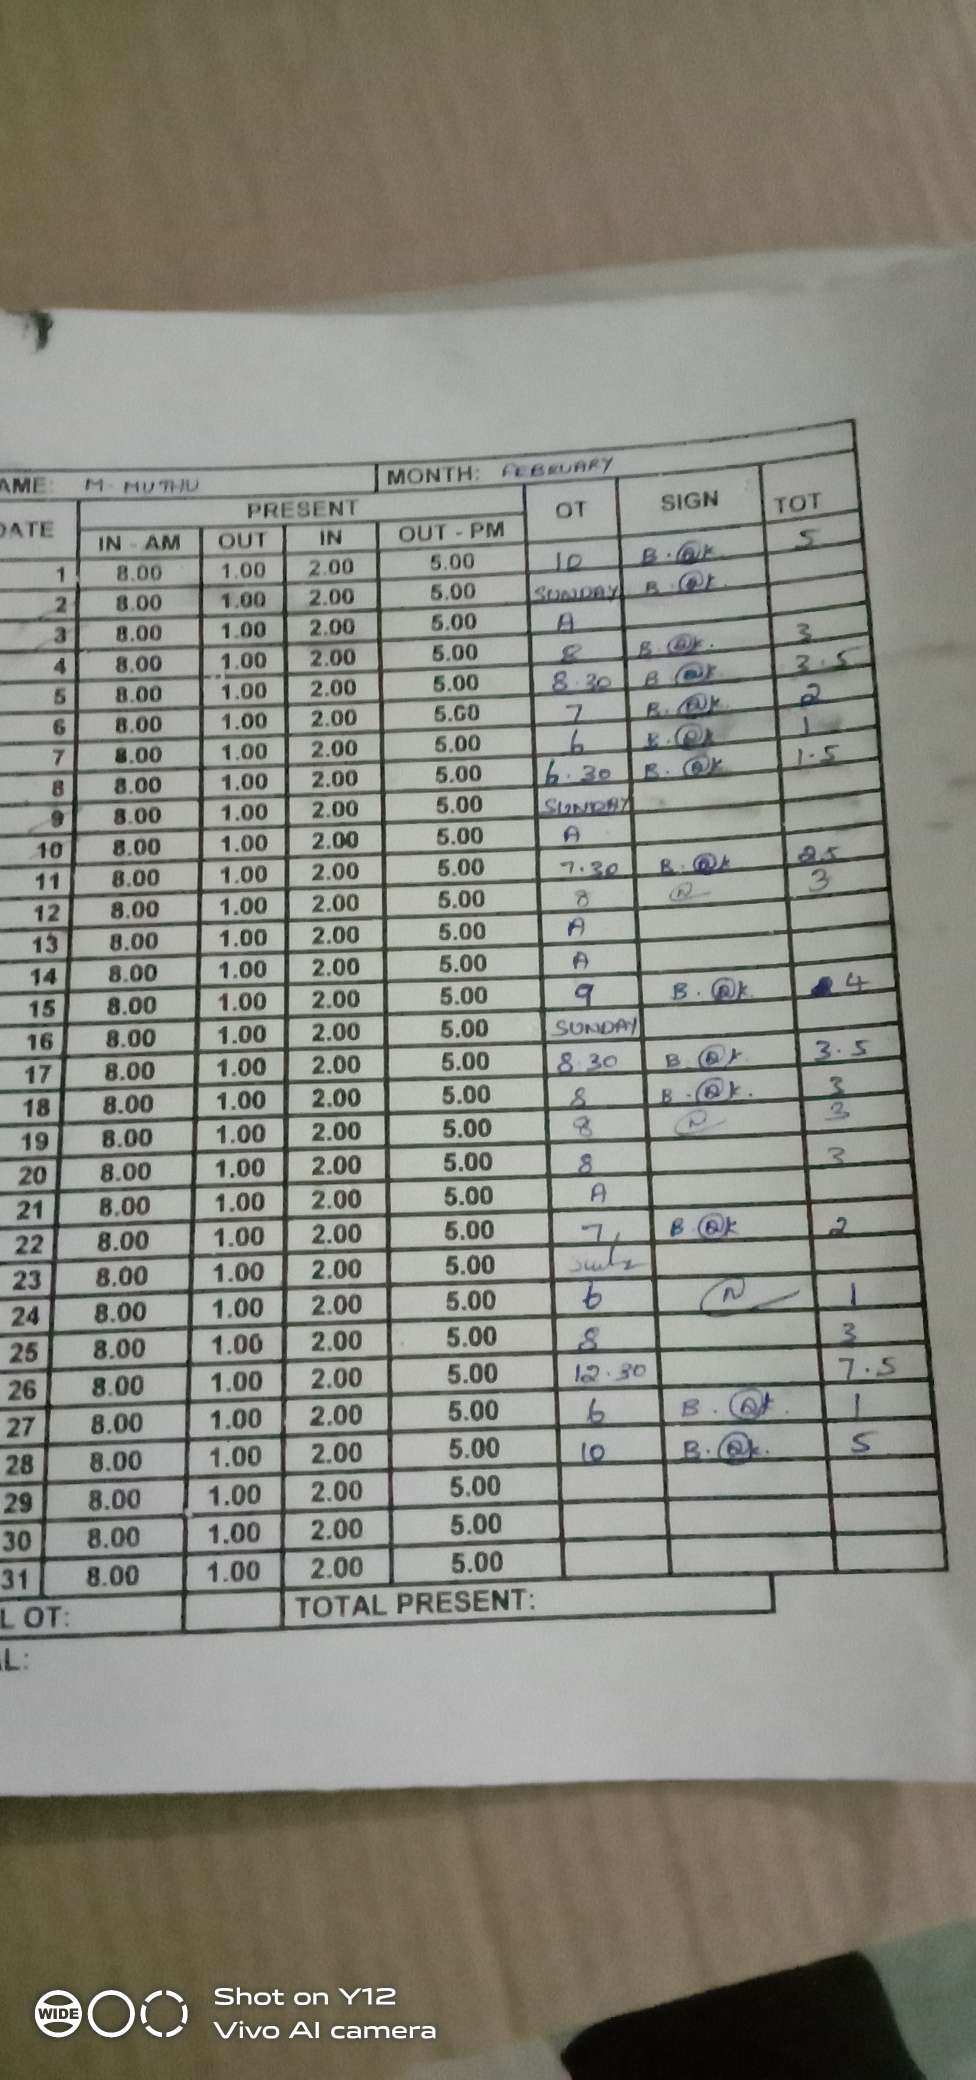 AME: M. MUTHU MONTH: FEBRUARY
DATE PRESENT OT SIGN TOT
IN - AM OUT IN OUT - PM
1 8.00 1.00 2.00 5.00 10 B. 5
2 8.00 1.00 2.00 5.00 SUNDAY B.
3 8.00 1.00 2.00 5.00 A
4 8.00 1.00 2.00 5.00 8 B. 3
5 8.00 1.00 2.00 5.00 8.30 B. 3.5
6 8.00 1.00 2.00 5.00 7 B. 2
7 8.00 1.00 2.00 5.00 6 B. 1
8 8.00 1.00 2.00 5.00 6.30 B. 1.5
9 8.00 1.00 2.00 5.00 SUNDAY
10 8.00 1.00 2.00 5.00 A
11 8.00 1.00 2.00 5.00 7.30 B. 2.5
12 8.00 1.00 2.00 5.00 8 3
13 8.00 1.00 2.00 5.00 A
14 8.00 1.00 2.00 5.00 A
15 8.00 1.00 2.00 5.00 9 B. 4
16 8.00 1.00 2.00 5.00 SUNDAY
17 8.00 1.00 2.00 5.00 8.30 B. 3.5
18 8.00 1.00 2.00 5.00 8 B. 3
19 8.00 1.00 2.00 5.00 8 3
20 8.00 1.00 2.00 5.00 8 3
21 8.00 1.00 2.00 5.00 A
22 8.00 1.00 2.00 5.00 7 B. 2
23 8.00 1.00 2.00 5.00
24 8.00 1.00 2.00 5.00 6 N 1
25 8.00 1.00 2.00 5.00 8 3
26 8.00 1.00 2.00 5.00 12.30 7.5
27 8.00 1.00 2.00 5.00 6 B. 1
28 8.00 1.00 2.00 5.00 10 B. 5
29 8.00 1.00 2.00 5.00
30 8.00 1.00 2.00 5.00
31 8.00 1.00 2.00 5.00
L OT: TOTAL PRESENT:
AL:
WIDE Shot on Y12
Vivo AI camera